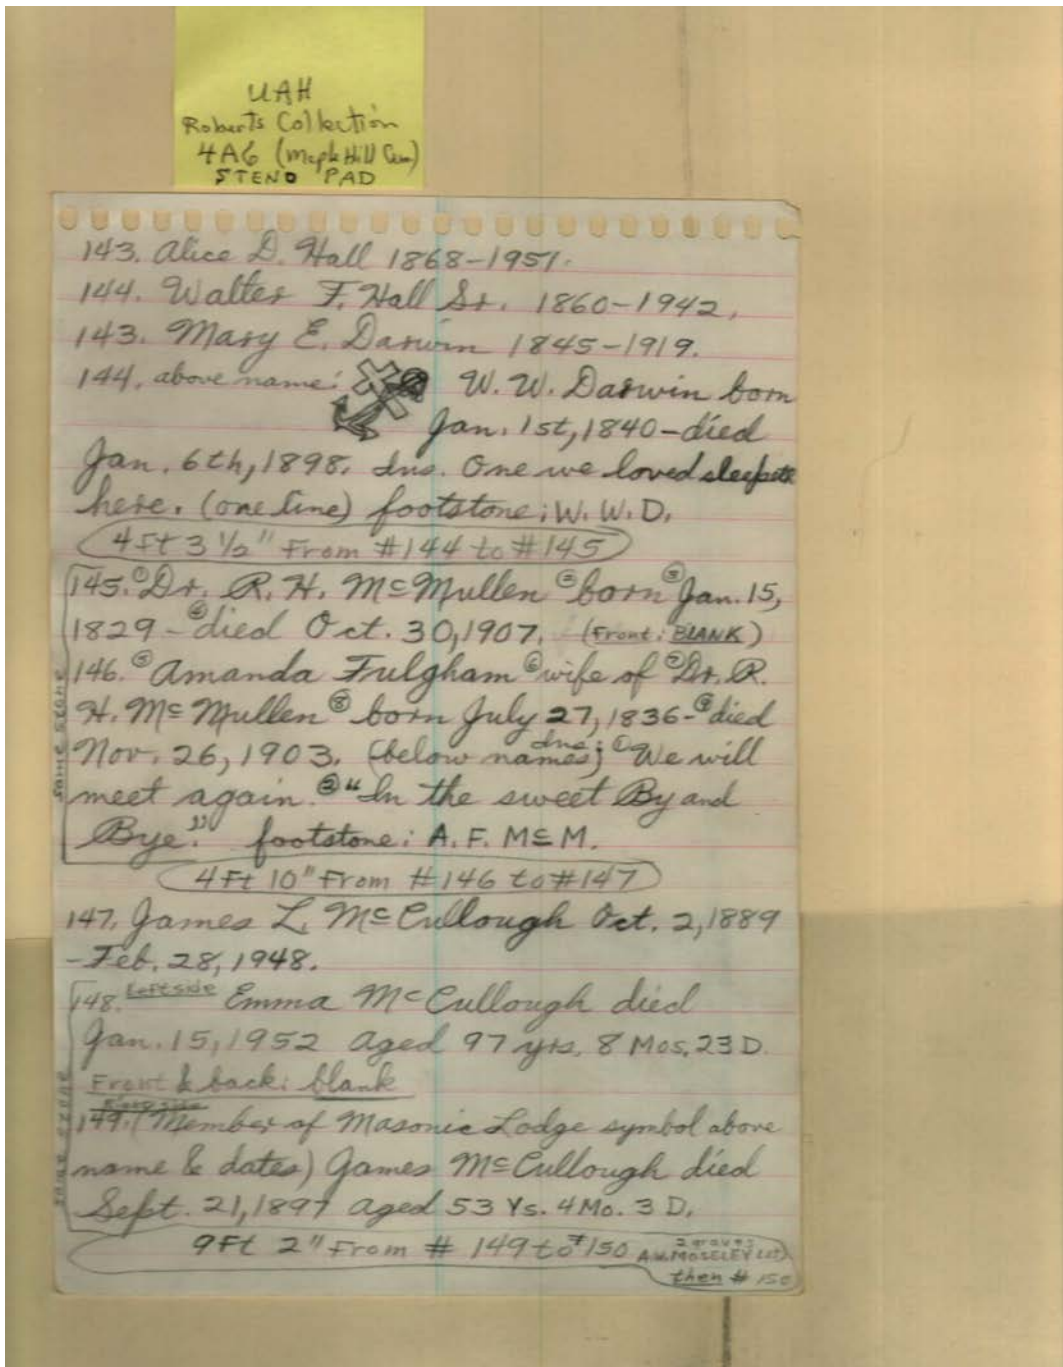 UAH
Roberts Collection
4A6 (Maple Hill Cem)
STENO PAD
143. Alice D. Hall 1868-1951.
144. Walter F. Hall Sr. 1860-1942.
143. Mary E. Darwin 1845-1919.
144. above name: W. W. Darwin born
Jan. 1st, 1840-died
Jan. 6th, 1898. Ins. One we loved sleepeth
here. (one line) footstone: W. W. D.
4 Ft 3 ½" From #144 to #145
145. ① Dr. R. H. McMullen ② born ③ Jan. 15,
1829 - ④ died Oct. 30, 1907. (Front: BLANK)
146. ⑤ Amanda Fulgham ⑥ wife of ⑦ Dr. R.
H. McMullen ⑧ born July 27, 1836- ⑨ died
Nov. 26, 1903. (below names) Ins: ① We will
meet again. ② "In the sweet By and
Bye." footstone: A. F. McM.
same stone
4 Ft 10" From #146 to #147
147. James L. McCullough Oct. 2, 1889
-Feb. 28, 1948.
148. Left side Emma McCullough died
Jan. 15, 1952 aged 97 yrs. 8 Mos. 23 D.
Front & back: blank
Right side
149. (Member of Masonic Lodge symbol above
name & dates) James McCullough died
Sept. 21, 1897 aged 53 Ys. 4 Mo. 3 D.
same stone
9 Ft 2" From # 149 to #150 2 graves
A.W. MOSELEY Lot)
then # 150